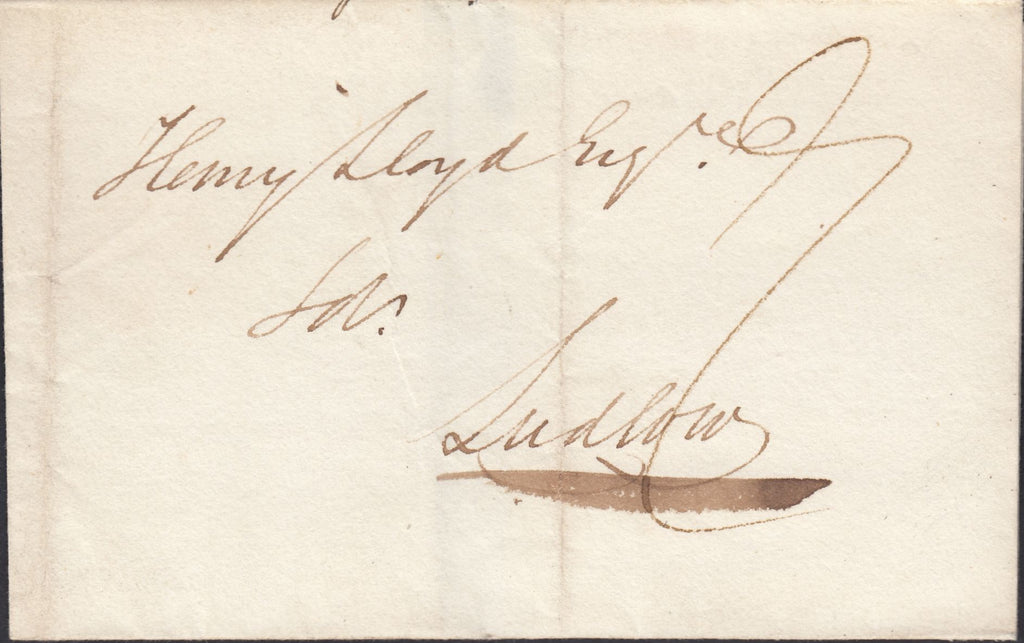 Henry Lloyd Esqre.
Solr.
Ludlow